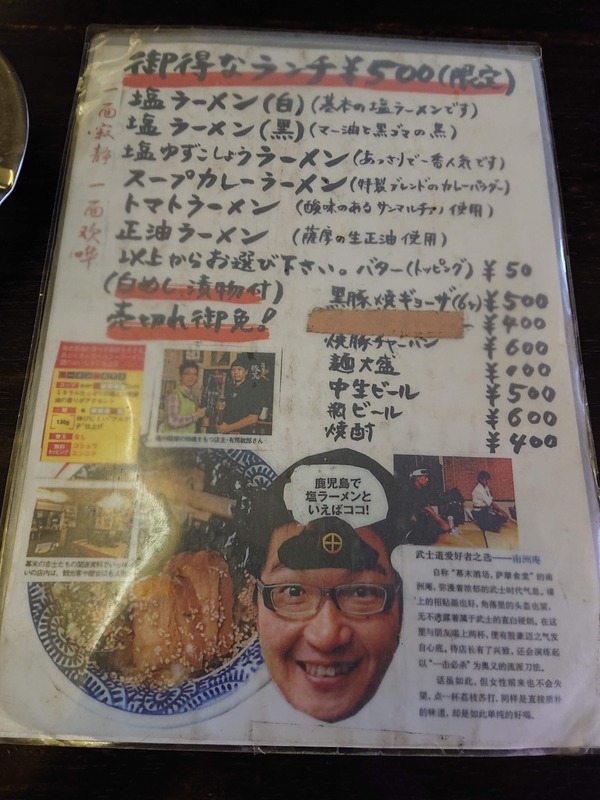 御得なランチ¥500(限定)
塩ラーメン(白)(基本の塩ラーメンです)
塩ラーメン(黒)(マー油と黒ゴマの黒)
塩ゆずこしょうラーメン(あっさりで一番人気です)
スープカレーラーメン(特製ブレンドのカレーパウダー)
トマトラーメン(酸味のあるサンマルツァノ使用)
正油ラーメン(薩摩の生正油使用)
以上からお選び下さい。バター(トッピング)¥50
(白めし、漬物付)
売切れ御免!
一面寂静 一面欢哗
黒豚焼ギョーザ(6ヶ)¥500
¥400
焼豚チャーハン ¥600
麺大盛
中生ビール ¥500
瓶ビール ¥600
焼酎 ¥400
130g
鹿児島で
塩ラーメンと
いえばココ!
武士道爱好者之选——南洲庵
自称“幕末酒场,萨摩食堂”的南
洲庵,弥漫着浓郁的武士时代气息,墙
上的招贴画也好,角落里的头盔也罢,
无不透露着属于武士的直白硬朗。在这
里与朋友喝上两杯,便有股豪迈之气发
自心底。待店长有了兴致,还会演练起
以“一击必杀”为奥义的流派刀法。
话虽如此,但女性前来也不会失
望。点一杯荔枝苏打,同样是直接质朴
的味道,却是如此单纯的好喝。